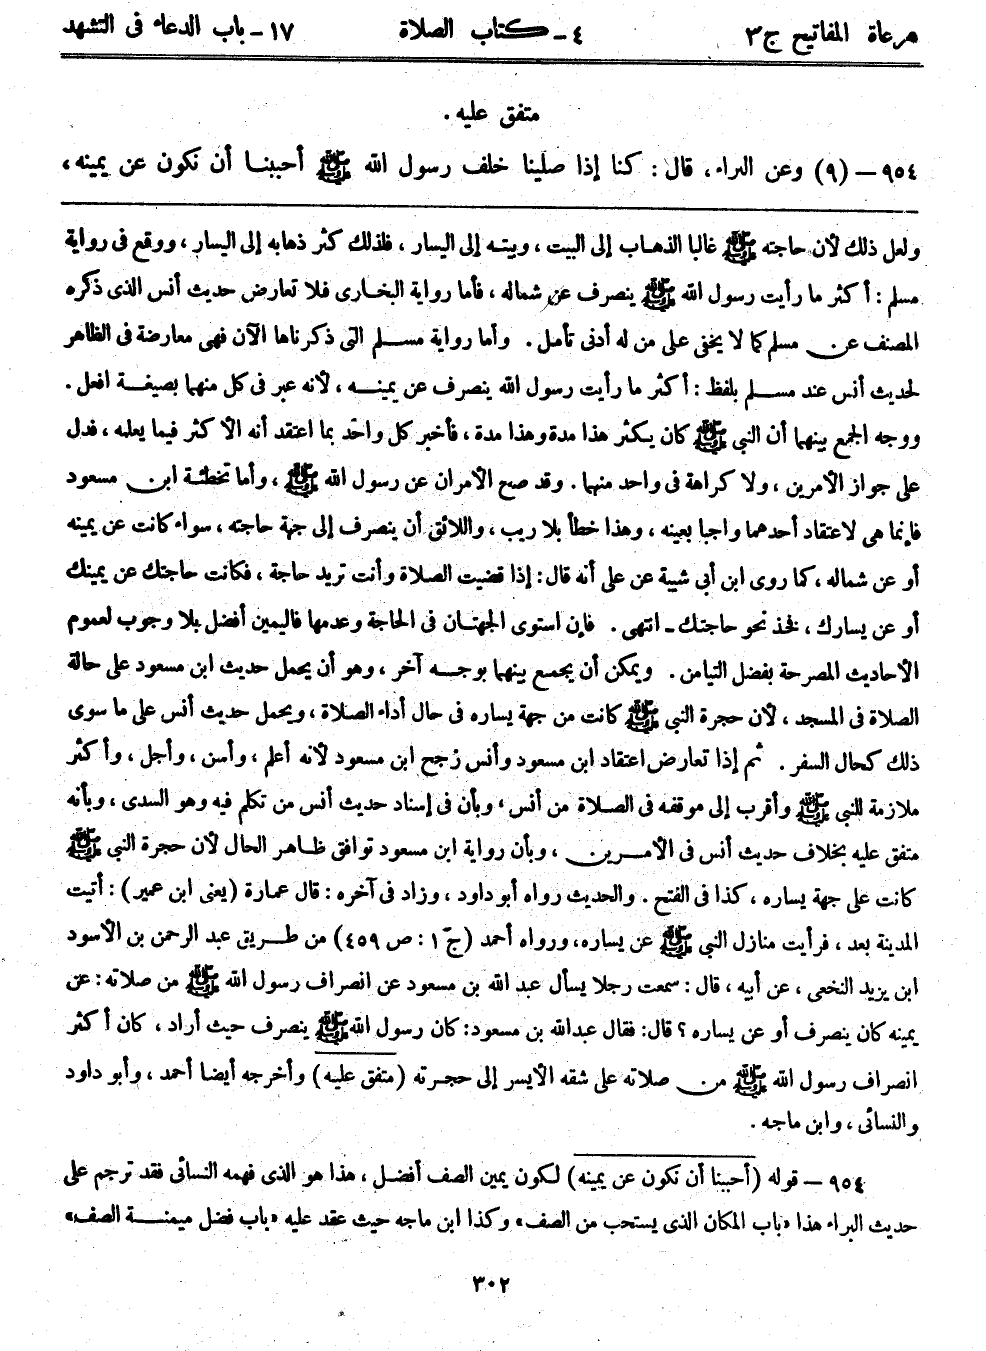 مرعاة المفاتيح ج٣ ٤ ـ كتاب الصلاة ١٧ ـ باب الدعاء فى التشهد
متفق عليه .
٩٥٤ – (٩) وعن البراء، قال: كنا إذا صلينا خلف رسول الله ﷺ أحببنا أن نكون عن يمينه،
ولعل ذلك لأن حاجته ﷺ غالبا الذهاب إلى البيت، وبيته إلى اليسار، فلذلك كثر ذهابه إلى اليسار، ووقع فى رواية
مسلم: أكثر ما رأيت رسول الله ﷺ ينصرف عن شماله، فأما رواية البخارى فلا تعارض حديث أنس الذى ذكره
المصنف عن مسلم كما لا يخفى على من له أدنى تأمل. وأما رواية مسلم التى ذكرناها الآن فهى معارضة فى الظاهر
لحديث أنس عند مسلم بلفظ: أكثر ما رأيت رسول الله ينصرف عن يمينه، لأنه عبر فى كل منهما بصيغة افعل.
ووجه الجمع بينهما أن النبى ﷺ كان يكثر هذا مدة وهذا مدة، فأخبر كل واحد بما اعتقد أنه الأكثر فيما يعلمه، فدل
على جواز الأمرين، ولا كراهة فى واحد منهما. وقد صح الأمران عن رسول الله ﷺ، وأما تخطئة ابن مسعود
فإنما هى لاعتقاد أحدهما واجبا بعينه، وهذا خطأ بلا ريب، واللائق أن ينصرف إلى جهة حاجته، سواء كانت عن يمينه
أو عن شماله، كما روى ابن أبى شيبة عن على أنه قال: إذا قضيت الصلاة وأنت تريد حاجة، فكانت حاجتك عن يمينك
أو عن يسارك، فخذ نحو حاجتك ـ انتهى. فإن استوى الجهتان فى الحاجة وعدمها فاليمين أفضل بلا وجوب لعموم
الأحاديث المصرحة بفضل التيامن. ويمكن أن يجمع بينهما بوجه آخر، وهو أن يحمل حديث ابن مسعود على حالة
الصلاة فى المسجد، لأن حجرة النبى ﷺ كانت من جهة يساره فى حال أداء الصلاة، ويحمل حديث أنس على ما سوى
ذلك كحال السفر. ثم إذا تعارض اعتقاد ابن مسعود وأنس رجح ابن مسعود لأنه أعلم، وأسن، وأجل، وأكثر
ملازمة للنبى ﷺ وأقرب إلى موقفه فى الصلاة من أنس، وبأن فى إسناد حديث أنس من تكلم فيه وهو السدى، وبأنه
متفق عليه بخلاف حديث أنس فى الأمرين، وبأن رواية ابن مسعود توافق ظاهر الحال لأن حجرة النبى ﷺ
كانت على جهة يساره، كذا فى الفتح. والحديث رواه أبو داود، وزاد فى آخره: قال عمارة (يعنى ابن عمير): أتيت
المدينة بعد، فرأيت منازل النبى ﷺ عن يساره، ورواه أحمد (ج١: ص ٤٥٩) من طريق عبد الرحمن بن الأسود
ابن يزيد النخعى، عن أبيه، قال: سمعت رجلا يسأل عبد الله بن مسعود عن انصراف رسول الله ﷺ من صلاته: عن
يمينه كان ينصرف أو عن يساره؟ قال: فقال عبدالله بن مسعود: كان رسول الله ﷺ ينصرف حيث أراد، كان أكثر
انصراف رسول الله ﷺ من صلاته على شقه الأيسر إلى حجرته (متفق عليه) وأخرجه أيضا أحمد، وأبو داود
والنسائى، وابن ماجه.
٩٥٤ – قوله (أحببنا أن نكون عن يمينه) لكون يمين الصف أفضل، هذا هو الذى فهمه النسائى فقد ترجم على
حديث البراء هذا «باب المكان الذى يستحب من الصف» وكذا ابن ماجه حيث عقد عليه «باب فضل ميمنة الصف»
٣٠٢